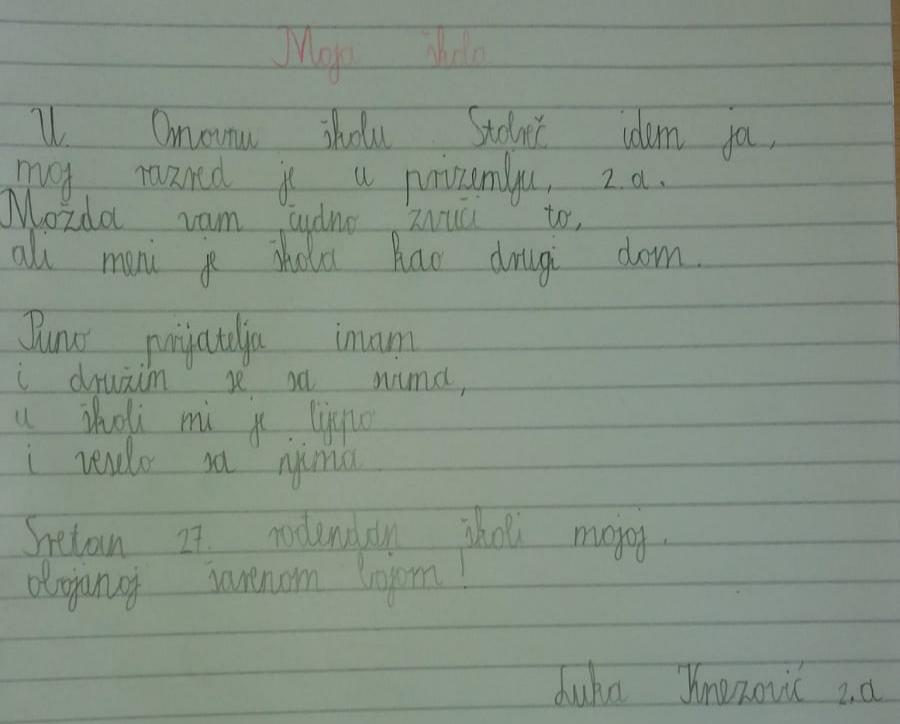 Moja škola
U Osnovnu školu Stobreč idem ja,
moj razred je u prizemlju, 2.a.
Možda vam čudno zvuči to,
ali meni je škola kao drugi dom.
Puno prijatelja imam
i družim se sa svima,
u školi mi je lijepo
i veselo sa njima
Sretan 27. rođendan školi mojoj.
obojanoj šarenom bojom!
Luka Knezović 2.a